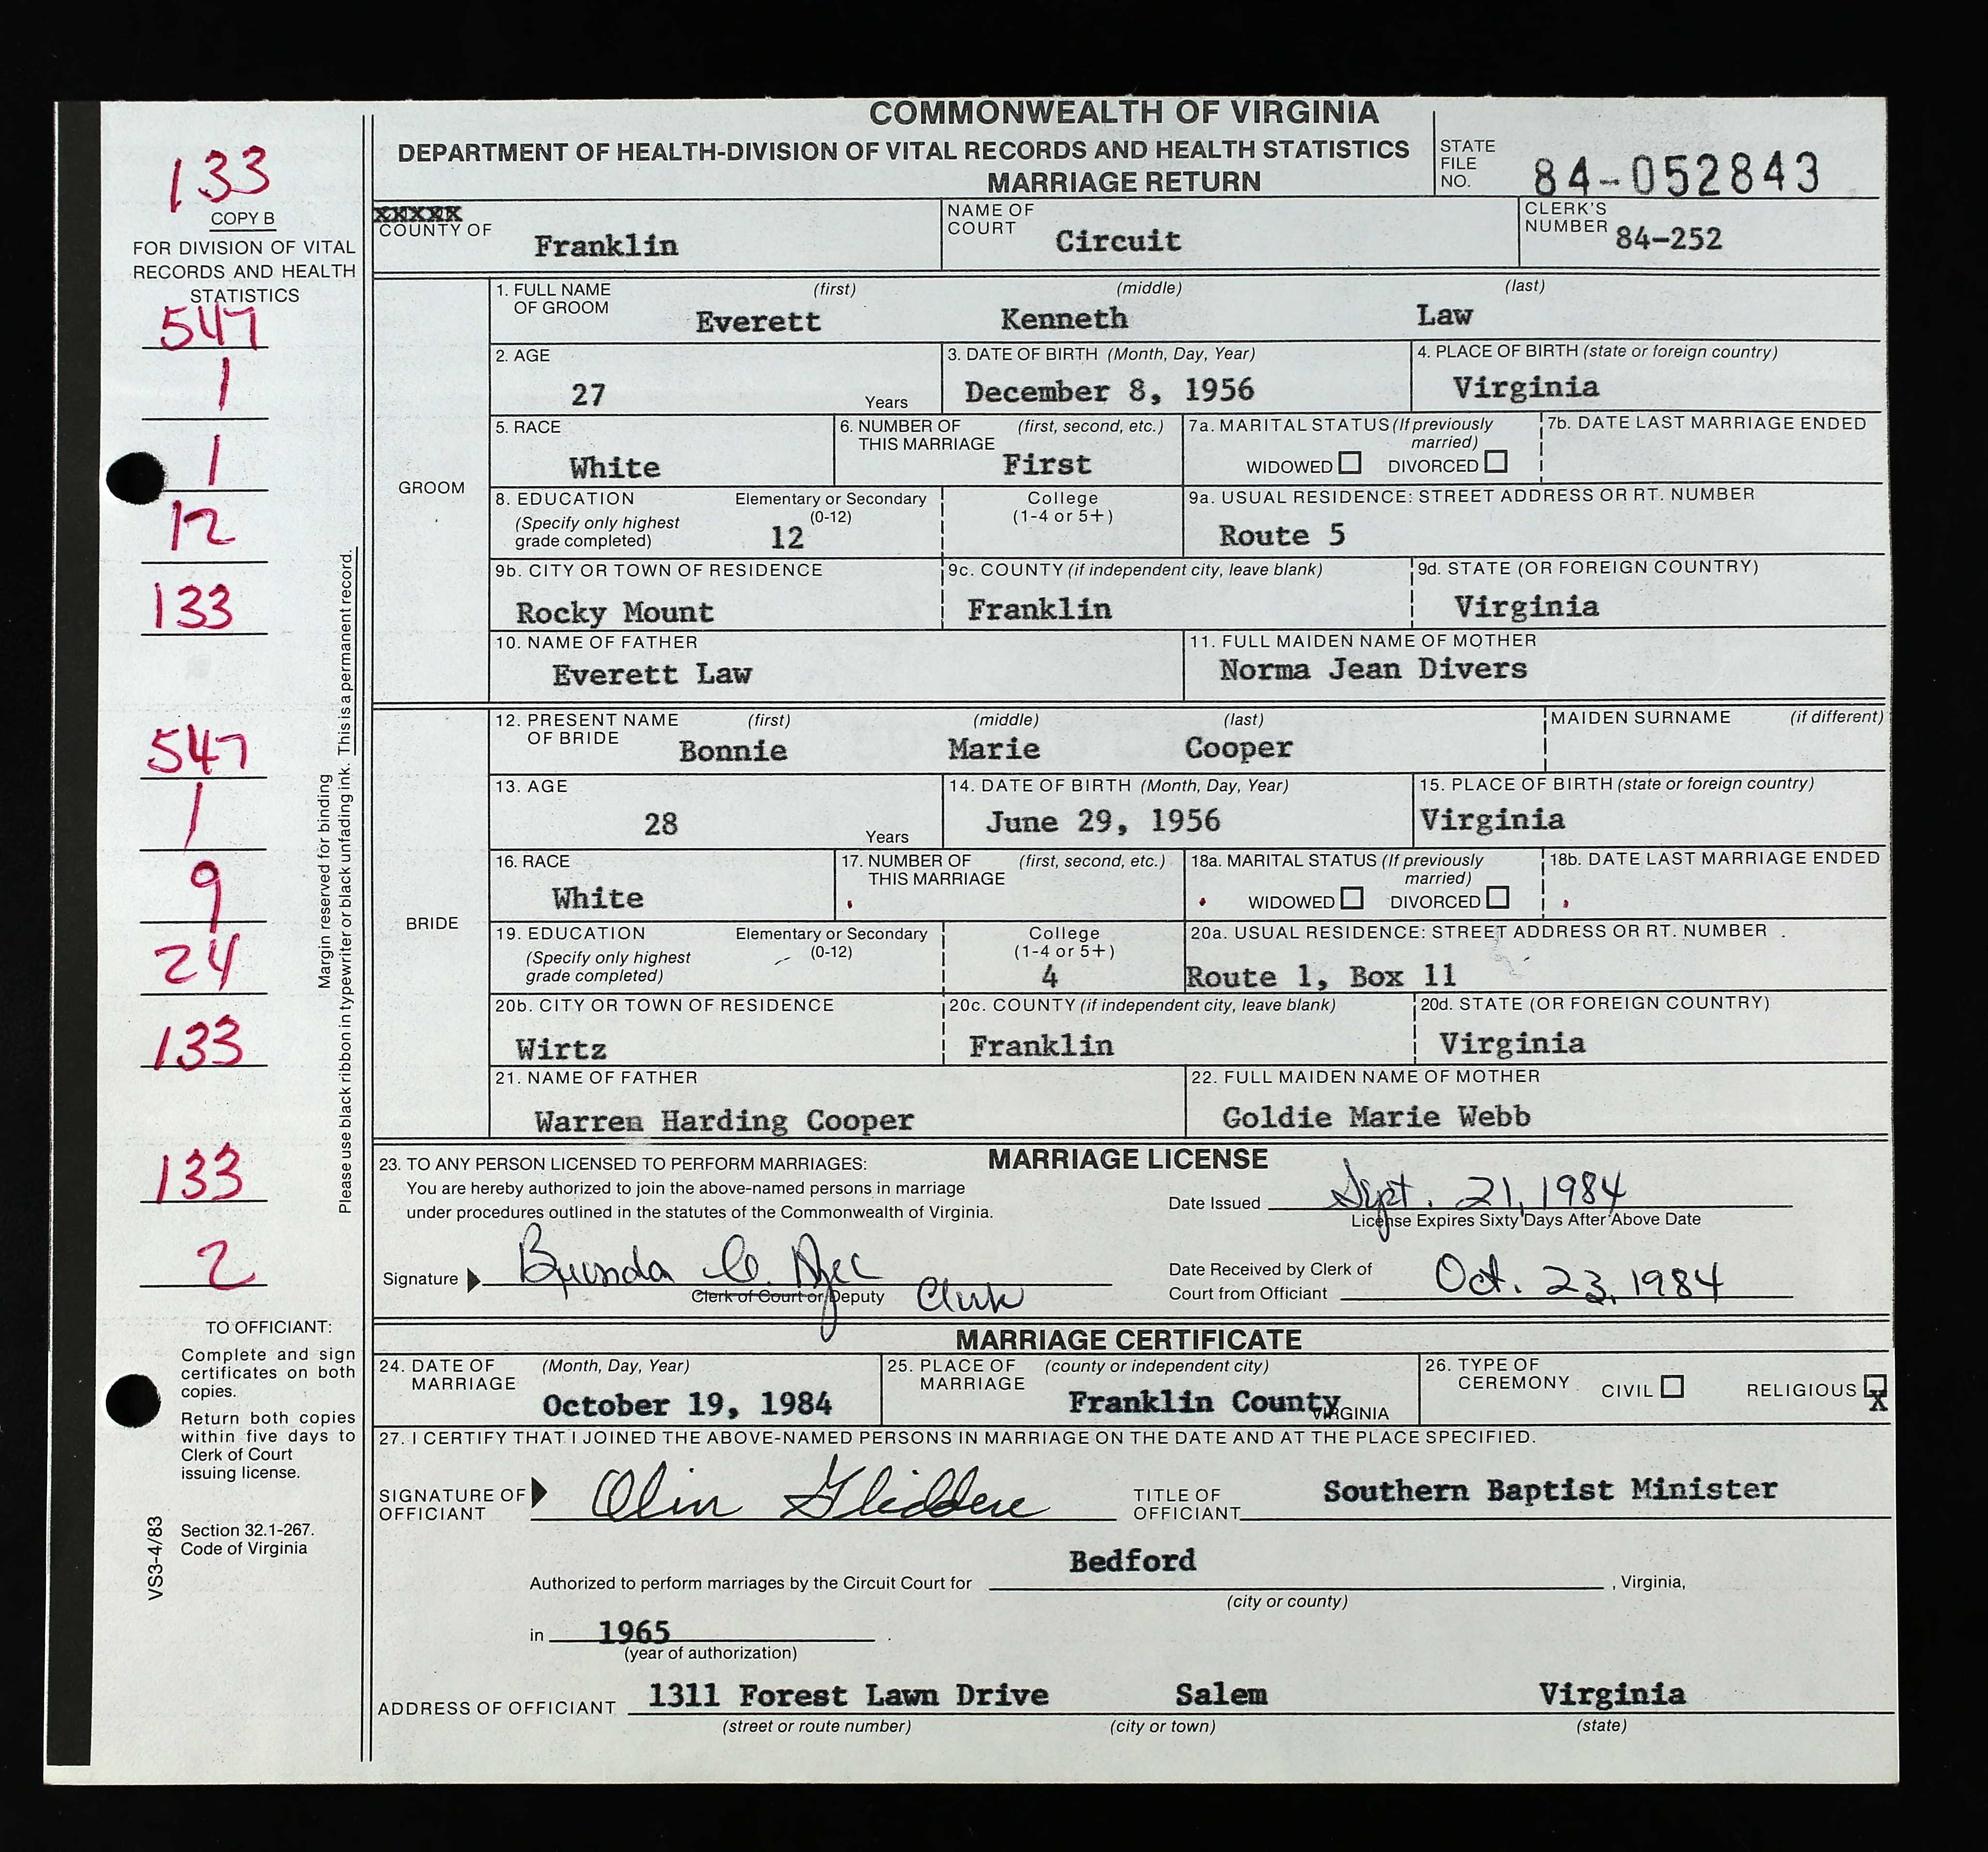 COMMONWEALTH OF VIRGINIA
DEPARTMENT OF HEALTH-DIVISION OF VITAL RECORDS AND HEALTH STATISTICS
MARRIAGE RETURN
STATE FILE NO. 84-052843
133
COPY B
FOR DIVISION OF VITAL
RECORDS AND HEALTH
STATISTICS
547
1
1
12
133
547
1
9
24
133
133
2
Margin reserved for binding
Please use black ribbon in typewriter or black unfading ink. This is a permanent record.
TO OFFICIANT:
Complete and sign
certificates on both
copies.
Return both copies
within five days to
Clerk of Court
issuing license.
Section 32.1-267.
Code of Virginia
VS3-4/83
XXXXX
COUNTY OF Franklin
NAME OF COURT Circuit
CLERK'S NUMBER 84-252
GROOM
1. FULL NAME OF GROOM (first) (middle) (last)
Everett Kenneth Law
2. AGE 27 Years
3. DATE OF BIRTH (Month, Day, Year) December 8, 1956
4. PLACE OF BIRTH (state or foreign country) Virginia
5. RACE White
6. NUMBER OF THIS MARRIAGE (first, second, etc.) First
7a. MARITAL STATUS (If previously married) WIDOWED DIVORCED
7b. DATE LAST MARRIAGE ENDED
8. EDUCATION (Specify only highest grade completed) Elementary or Secondary (0-12) 12
College (1-4 or 5+)
9a. USUAL RESIDENCE: STREET ADDRESS OR RT. NUMBER Route 5
9b. CITY OR TOWN OF RESIDENCE Rocky Mount
9c. COUNTY (if independent city, leave blank) Franklin
9d. STATE (OR FOREIGN COUNTRY) Virginia
10. NAME OF FATHER Everett Law
11. FULL MAIDEN NAME OF MOTHER Norma Jean Divers
BRIDE
12. PRESENT NAME OF BRIDE (first) (middle) (last)
Bonnie Marie Cooper
MAIDEN SURNAME (if different)
13. AGE 28 Years
14. DATE OF BIRTH (Month, Day, Year) June 29, 1956
15. PLACE OF BIRTH (state or foreign country) Virginia
16. RACE White
17. NUMBER OF THIS MARRIAGE (first, second, etc.)
18a. MARITAL STATUS (If previously married) WIDOWED DIVORCED
18b. DATE LAST MARRIAGE ENDED
19. EDUCATION (Specify only highest grade completed) Elementary or Secondary (0-12)
College (1-4 or 5+) 4
20a. USUAL RESIDENCE: STREET ADDRESS OR RT. NUMBER Route 1, Box 11
20b. CITY OR TOWN OF RESIDENCE Wirtz
20c. COUNTY (if independent city, leave blank) Franklin
20d. STATE (OR FOREIGN COUNTRY) Virginia
21. NAME OF FATHER Warren Harding Cooper
22. FULL MAIDEN NAME OF MOTHER Goldie Marie Webb
MARRIAGE LICENSE
23. TO ANY PERSON LICENSED TO PERFORM MARRIAGES:
You are hereby authorized to join the above-named persons in marriage
under procedures outlined in the statutes of the Commonwealth of Virginia.
Date Issued Sept. 21, 1984
License Expires Sixty Days After Above Date
Signature
Clerk of Court or Deputy Clerk
Date Received by Clerk of
Court from Officiant Oct. 23, 1984
MARRIAGE CERTIFICATE
24. DATE OF MARRIAGE (Month, Day, Year) October 19, 1984
25. PLACE OF MARRIAGE (county or independent city) Franklin County VIRGINIA
26. TYPE OF CEREMONY CIVIL RELIGIOUS X
27. I CERTIFY THAT I JOINED THE ABOVE-NAMED PERSONS IN MARRIAGE ON THE DATE AND AT THE PLACE SPECIFIED.
SIGNATURE OF OFFICIANT Olin
TITLE OF OFFICIANT Southern Baptist Minister
Authorized to perform marriages by the Circuit Court for Bedford, Virginia,
(city or county)
in 1965
(year of authorization)
ADDRESS OF OFFICIANT 1311 Forest Lawn Drive Salem Virginia
(street or route number) (city or town) (state)